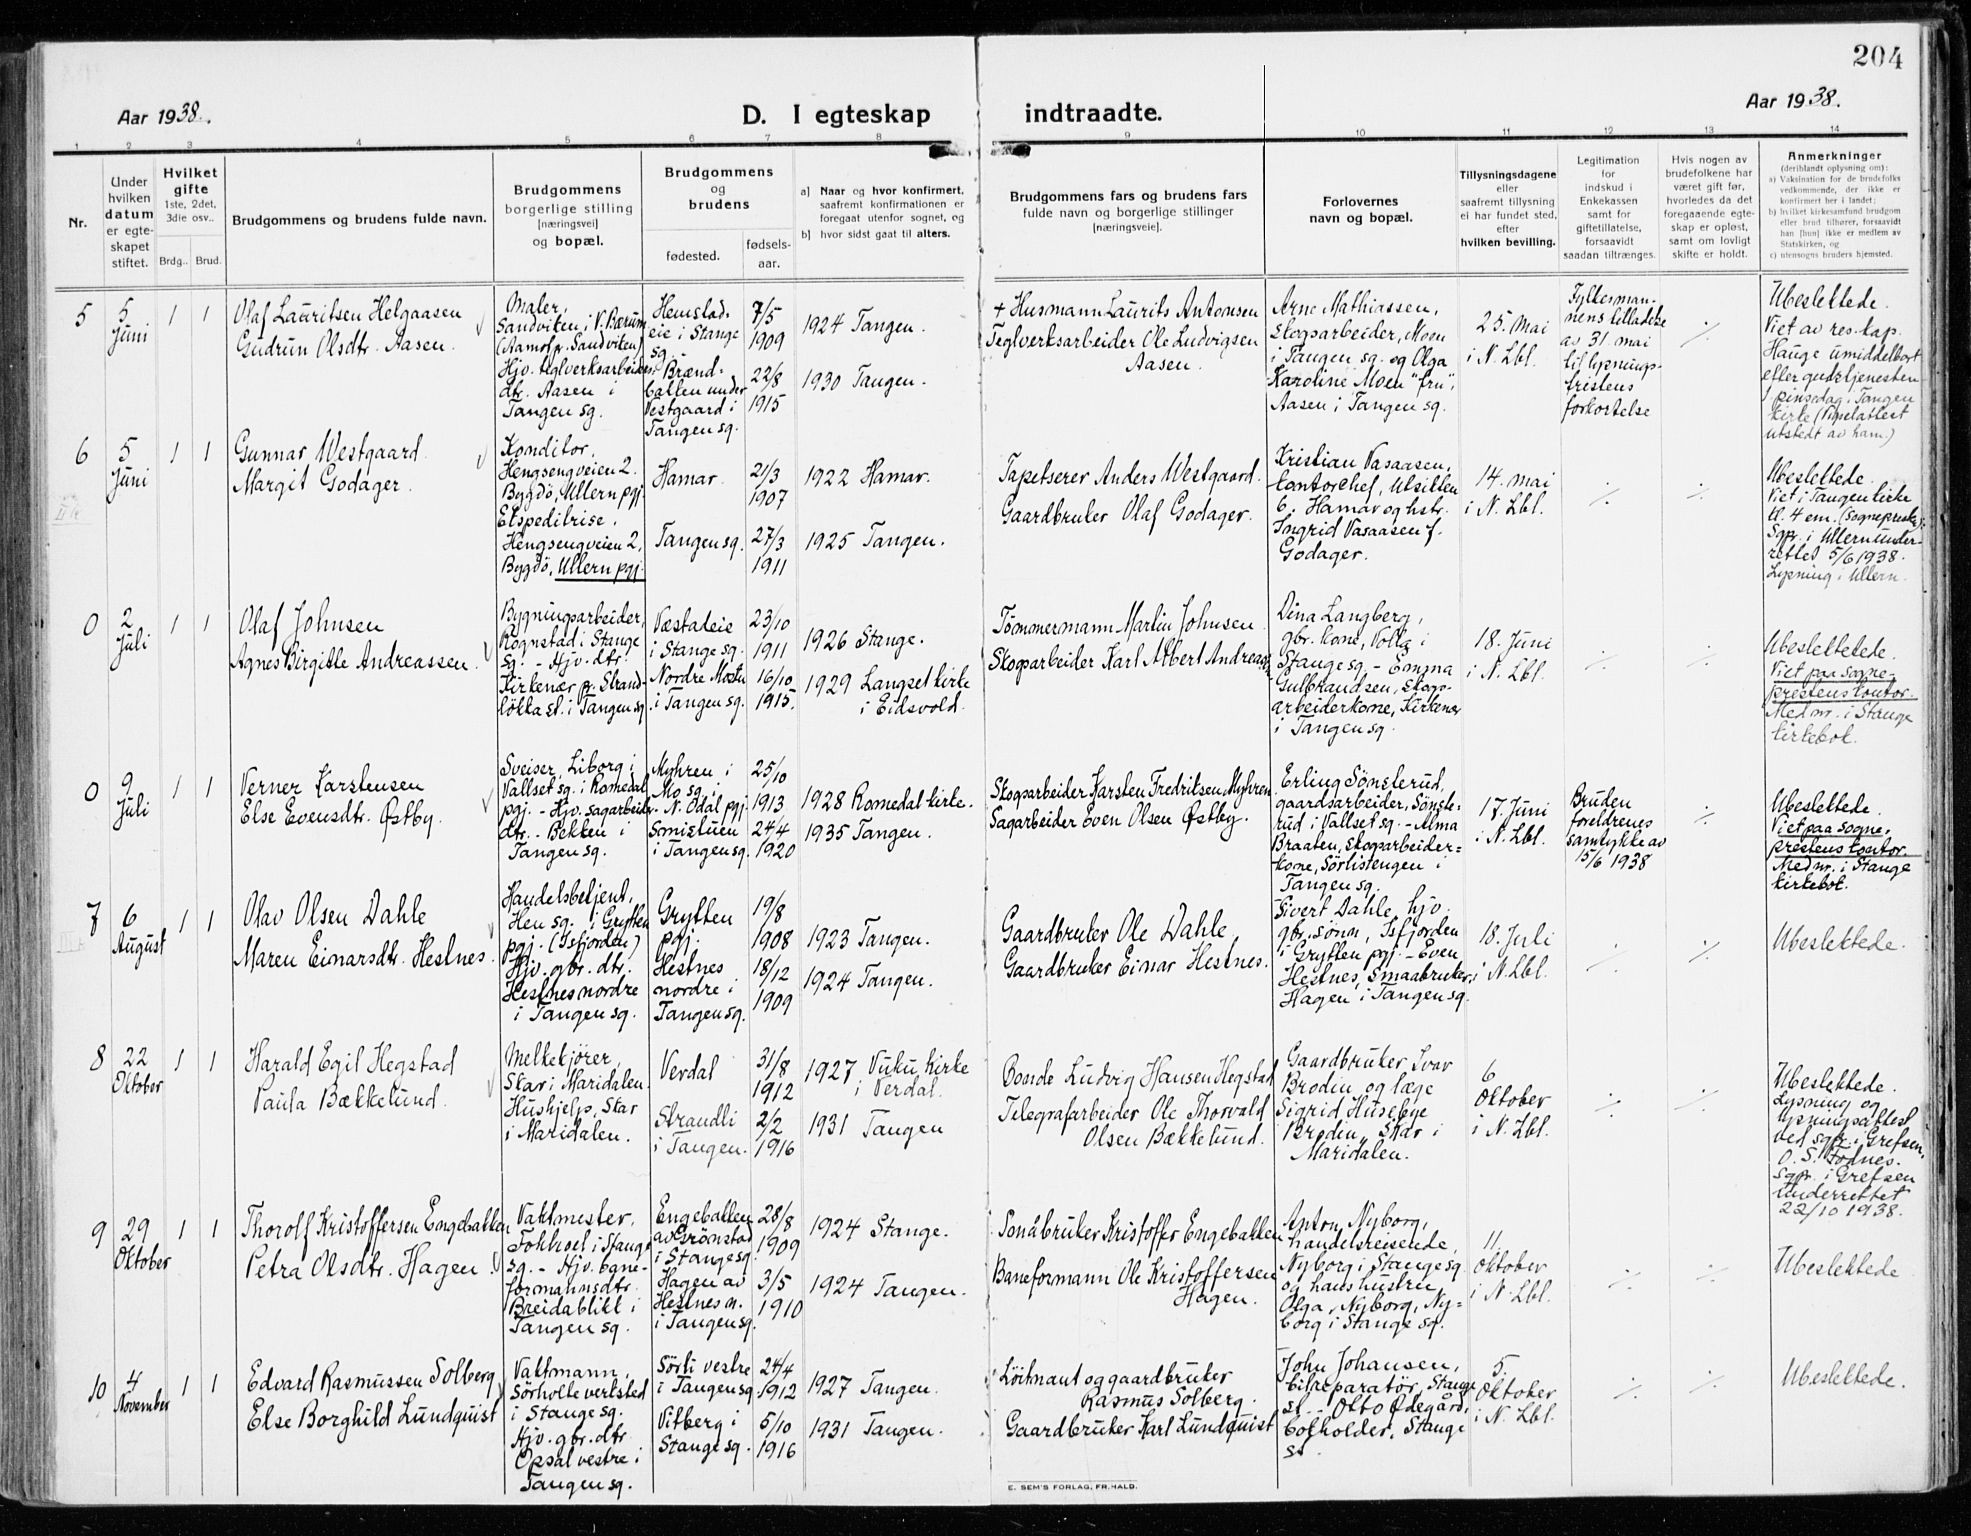 204
Aar 1938.
D. I egteskap indtraadte.
Aar 1938.
1 2 3 4 5 6 7 8 9 10 11 12 13 14
Nr.
Under
hvilken
datum
er egte-
skapet
stiftet.
Hvilket
gifte
1ste, 2det,
3die osv..
Brdg.. Brud.
Brudgommens og brudens fulde navn.
Brudgommens
borgerlige stilling
[næringsvei]
og bopæl.
Brudgommens
og
brudens
fødested.
fødsels-
aar.
a] Naar og hvor konfirmert,
saafremt konfirmationen er
foregaat utenfor sognet, og
b] hvor sidst gaat til alters.
Brudgommens fars og brudens fars
fulde navn og borgerlige stillinger
[næringsveie].
Forlovernes
navn og bopæl.
Tillysningsdagene
eller
saafremt tillysning
ei har fundet sted,
efter
hvilken bevilling.
Legitimation
for
indskud i
Enkekassen
samt for
giftetillatelse,
forsaavidt
saadan tiltrænges.
Hvis nogen av
brudefolkene har
været gift før,
hvorledes da det
foregaaende egte-
skap er opløst,
samt om lovligt
skifte er holdt.
Anmerkninger
(deriblandt oplysning om):
a) Vaksination for de brudefolks
vedkommende, der ikke er
konfirmert her i landet;
b) hvilket kirkesamfund brudgom
eller brud tilhører, forsaavidt
han [hun] ikke er medlem av
Statskirken, og
c) utensogns bruders hjemsted.
5
5
Juni
1 1
Olaf Lauritsen Helgaasen
Gudrun Olsdtr. Aasen.
Maler,
Sandviken i V. Bærum
Hjv. teglverksarbeider-
dtr. Aasen i
Tangen sg.
Hemstad-
eie i Stange
sg.
Brænd-
ballen under
Vestgaard i
Tangen sg.
7/5
1909
22/8
1915
1924 Tangen.
1930 Tangen.
+ Husmann Laurits Antonsen
Teglverksarbeider Ole Ludvigsen
Aasen.
Arne Mathiassen,
Skogsarbeider, Moen
i Tangen sg. og Olga
Karoline Moen "fru",
Aasen i Tangen sg.
25. Mai
i N. Lbl.
Fylkesman-
nens tilladelse
av 31. mai
til lysnings-
fristens
forkortelse
·/·
Ubeslektede.
Viet av res. kap.
Hauge umiddelbart
efter gudstjenesten
1. pinsedag i Tangen
kirke (Vigselattest
utstedt av ham.)
6
5
Juni
1 1
Gunnar Westgaard.
Margit Godager.
Konditor,
Hengsengveien 2.
Bygdö, Ullern pgj.
Ekspeditrise.
Hengsengveien 2,
Bygdö, Ullern pgj.
Hamar.
Tangen sg.
21/3
1907
27/3
1911
1922 Hamar.
1925 Tangen.
Tapetserer Anders Westgaard.
Gaardbruker Olaf Godager.
Kristian Vasaasen,
kontorchef, Utsikten
6. Hamar og hstr.
Ingrid Vasaasen f.
Godager.
14. mai
i N. Lbl.
·/·
·/·
Ubeslektede.
Viet i Tangen kirke
kl. 4 em. (Sogneprest).
Sgpr. i Ullern under-
rettet 5/6 1938.
Lysning i Ullern.
0
2
Juli
1 1
Olaf Johnsen
Agnes Birgitte Andreassen.
Bygningsarbeider,
Rognstad i Stange
sg. - Hjv. dtr.
Kirkenær p. Strand-
løkka st. i Tangen sg.
Væstadeie
i Stange sg.
Nordre Moste
i Tangen sg.
23/10
1911
16/10
1915.
1926 Stange.
1929 Langset kirke
i Eidsvold.
Tömmermann Martin Johnsen
Skogsarbeider Karl Albert Andreassen
Dina Langberg,
gbr. kone, Volla i
Stange sg. - Emma
Gulbrandsen, skogs-
arbeiderkone, Kirkenær
i Tangen sg.
18. Juni
i N. Lbl.
·/·
·/·
Ubeslektede.
Viet paa sogne-
prestens kontor.
Med nr. i Stange
kirkebok.
0
9
Juli
1 1
Verner Karstensen
Else Evensdtr. Østby.
Sveiser, Liborg i
Vallset sg. i Romedal
pgj. - Hjv. sagarbeider-
dtr. - Bekken i
Tangen sg.
Myhren i
Mo sg. i
N. Odal pgj.
Sonistuen
i Tangen sg.
25/10
1913
24/4
1920
1928 Romedal kirke.
1935 Tangen.
Skogsarbeider Karsten Fredriksen Myhren
Sagarbeider Even Olsen Østby.
Erling Sønsterud,
gaardsarbeider, Sønste-
rud i Vallset sg. - Alma
Braaten, skogsarbeider-
kone, Sørlistengen i
Tangen sg.
17. Juni
i N. Lbl.
Bruden
foreldrenes
samtykke av
15/6 1938
·/·
Ubeslektede.
Viet paa sogne-
prestens kontor.
Med nr. i Stange
kirkebok.
7
6
August
1 1
Olav Olsen Dahle
Maren Einarsdtr. Hestnes.
Handelsbetjent,
Hen sg. i Grytten
pgj. (Isfjorden)
Hjv. gbr. dtr.
Hestnes nordre
i Tangen sg.
Grytten
pgj.
Hestnes
nordre i
Tangen sg.
19/8
1908
18/12
1909
1923 Tangen.
1924 Tangen.
Gaardbruker Ole Dahle.
Gaardbruker Einar Hestnes.
Sivert Dahle, hjv.
gbr. sønn, Isfjorden
i Grytten pgj. - Even
Hestnes, Smaabruker,
Hagen i Tangen sg.
18. Juli
i N. Lbl.
·/·
·/·
Ubeslektede.
8
22
Oktober
1 1
Harald Egil Hegstad
Paula Bækkelund.
Melkekjører,
Skar i Maridalen.
Hushjelp, Skar
i Maridalen.
Verdal
Strandli
i Tangen.
31/8
1912
2/2
1916
1927 Vuku kirke
i Verdal.
1931 Tangen
Bonde Ludvig Hansen Hegstad
Telegrafarbeider Ole Thorvald
Olsen Bækkelund.
Gaardbruker Ivar
Brodin og læge
Sigrid Husebye
Brodin, Skar i
Maridalen.
6
Oktober
i N. Lbl.
·/·
·/·
Ubeslektede.
Lysning og
lysningsattest
ved sgpr. i Grefsen,
O. S. Fodnes.
Sgpr. i Grefsen
underrettet
22/10 1938.
9
29
Oktober
1 1
Thorolf Kristoffersen Engebakken
Petra Olsdtr. Hagen.
Vaktmester,
Fokhol i Stange
sg. - Hjv. bane-
formannsdtr.
Breidablikk i
Tangen sg.
Engebakken
av Grønstad
i Stange sg.
Hagen av
Hestnes n.
i Tangen sg.
28/8
1909
3/5
1910
1924 Stange.
1924 Tangen.
Småbruker Kristoffer Engebakken
Baneformann Ole Kristoffersen
Hagen.
Anton Nyborg,
handelsreisende,
Nyborg i Stange sg.
og hans hustru
Olga Nyborg, Ny-
borg i Stange sg.
11.
Oktober
i N. Lbl.
·/·
·/·
Ubeslektede
10
4
November
1 1
Edvard Rasmussen Solberg
Else Borghild Lundquist
Vaktmann,
Sørholte verksted
i Stange sg.
Hjv. gbr. dtr.
Opsal vestre i
Tangen sg.
Sørli vestre
i Tangen sg.
Vitberg i
Stange sg.
24/4
1912
5/10
1916
1927 Tangen.
1931 Tangen.
Löitnant og gaardbruker
Rasmus Solberg.
Gaardbruker Karl Lundquist
John Johansen,
bilreparatør, Stange
st. - Otto Ødegård,
bokholder, Stange
st.
5.
Oktober
i N. Lbl.
·/·
·/·
Ubeslektede.
E. SEM'S FORLAG, FR.HALD.